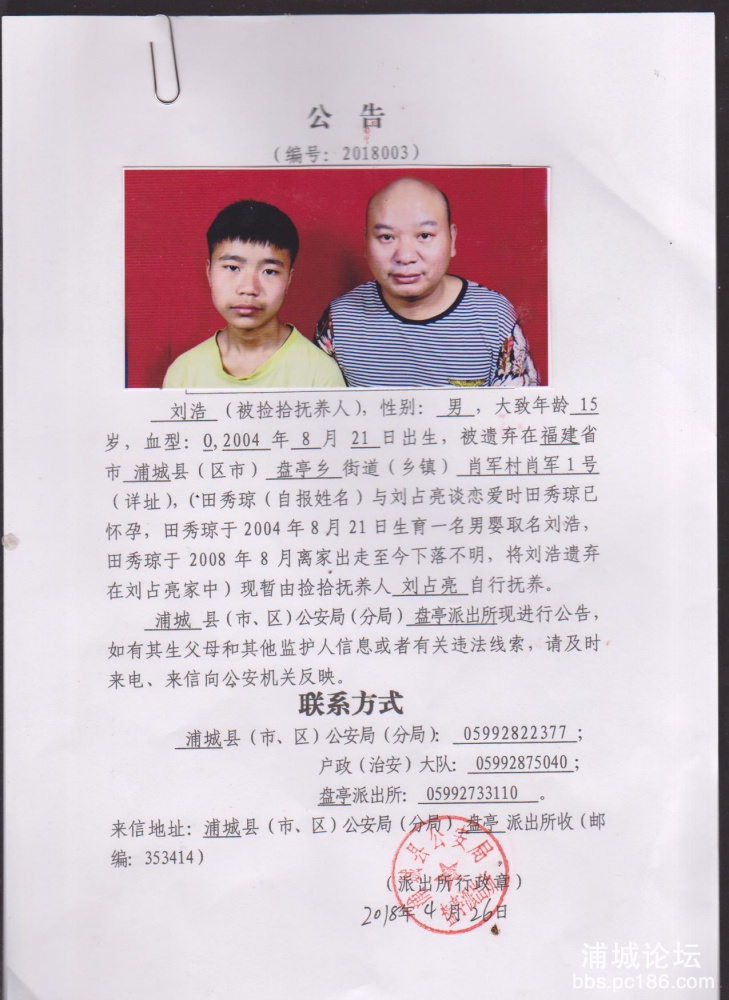 公 告
（编号：2018003）
刘浩 （被捡拾抚养人），性别： 男 ，大致年龄 15
岁，血型：O,2004 年 8 月 21 日出生，被遗弃在福建省
市 浦城县（区市） 盘亭乡 街道（乡镇） 肖军村肖军1号
（详址），（田秀琼（自报姓名）与刘占亮谈恋爱时田秀琼已
怀孕，田秀琼于 2004 年 8 月 21 日生育一名男婴取名刘浩，
田秀琼于 2008 年 8 月离家出走至今下落不明，将刘浩遗弃
在刘占亮家中）现暂由捡拾抚养人 刘占亮 自行抚养。
浦城 县（市、区）公安局（分局）盘亭派出所现进行公告，
如有其生父母和其他监护人信息或者有关违法线索，请及时
来电、来信向公安机关反映。
联系方式
浦城县（市、区）公安局（分局）： 05992822377 ；
户政（治安）大队： 05992875040 ；
盘亭派出所： 05992733110 。
来信地址：浦城县（市、区）公安局（分局）盘亭 派出所收（邮
编：353414）
浦城县公安局
盘亭派出所
（派出所行政章）
2018年 4 月 26日
浦城论坛
bbs.pc186.com